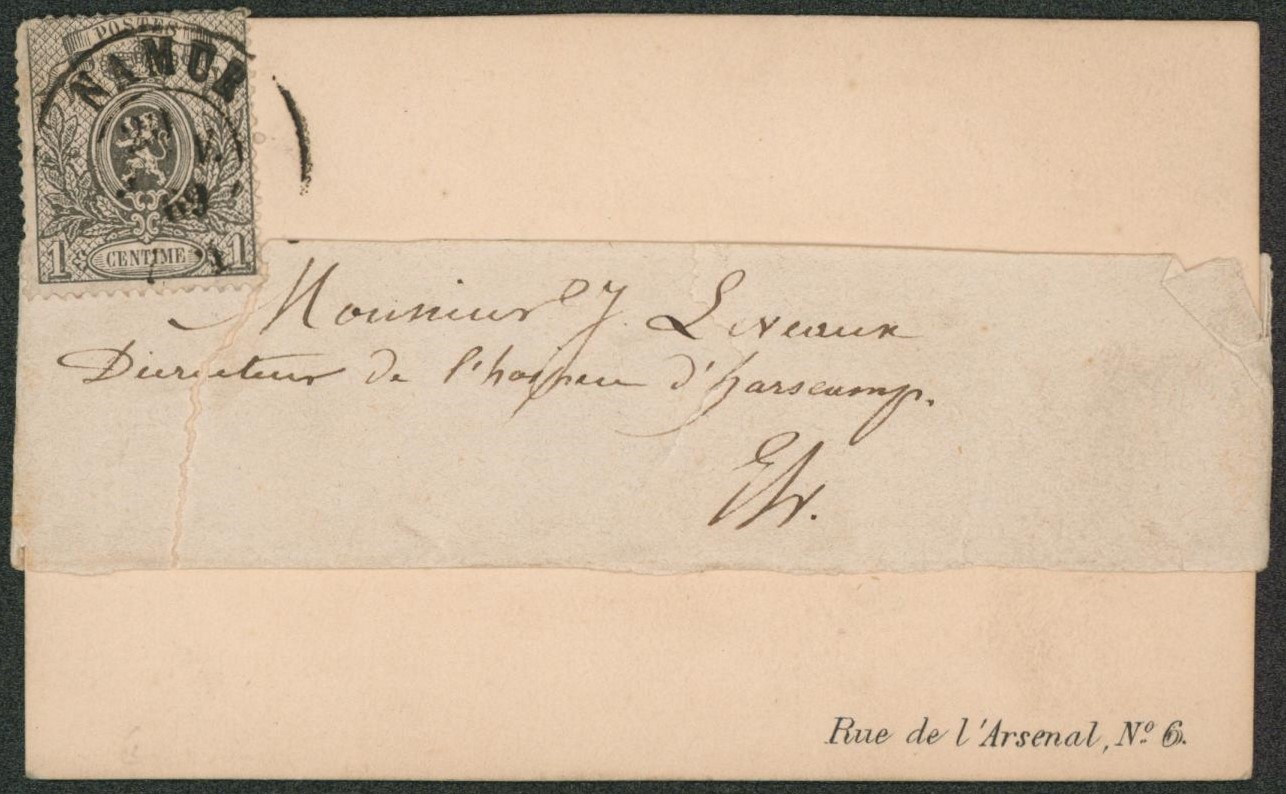 POSTES
NAMUR
69
1 CENTIME 1
Monsieur J. Liveaux
Directeur de l'hospice d'harscamp.
E/V.
Rue de l'Arsenal, Nº 6.